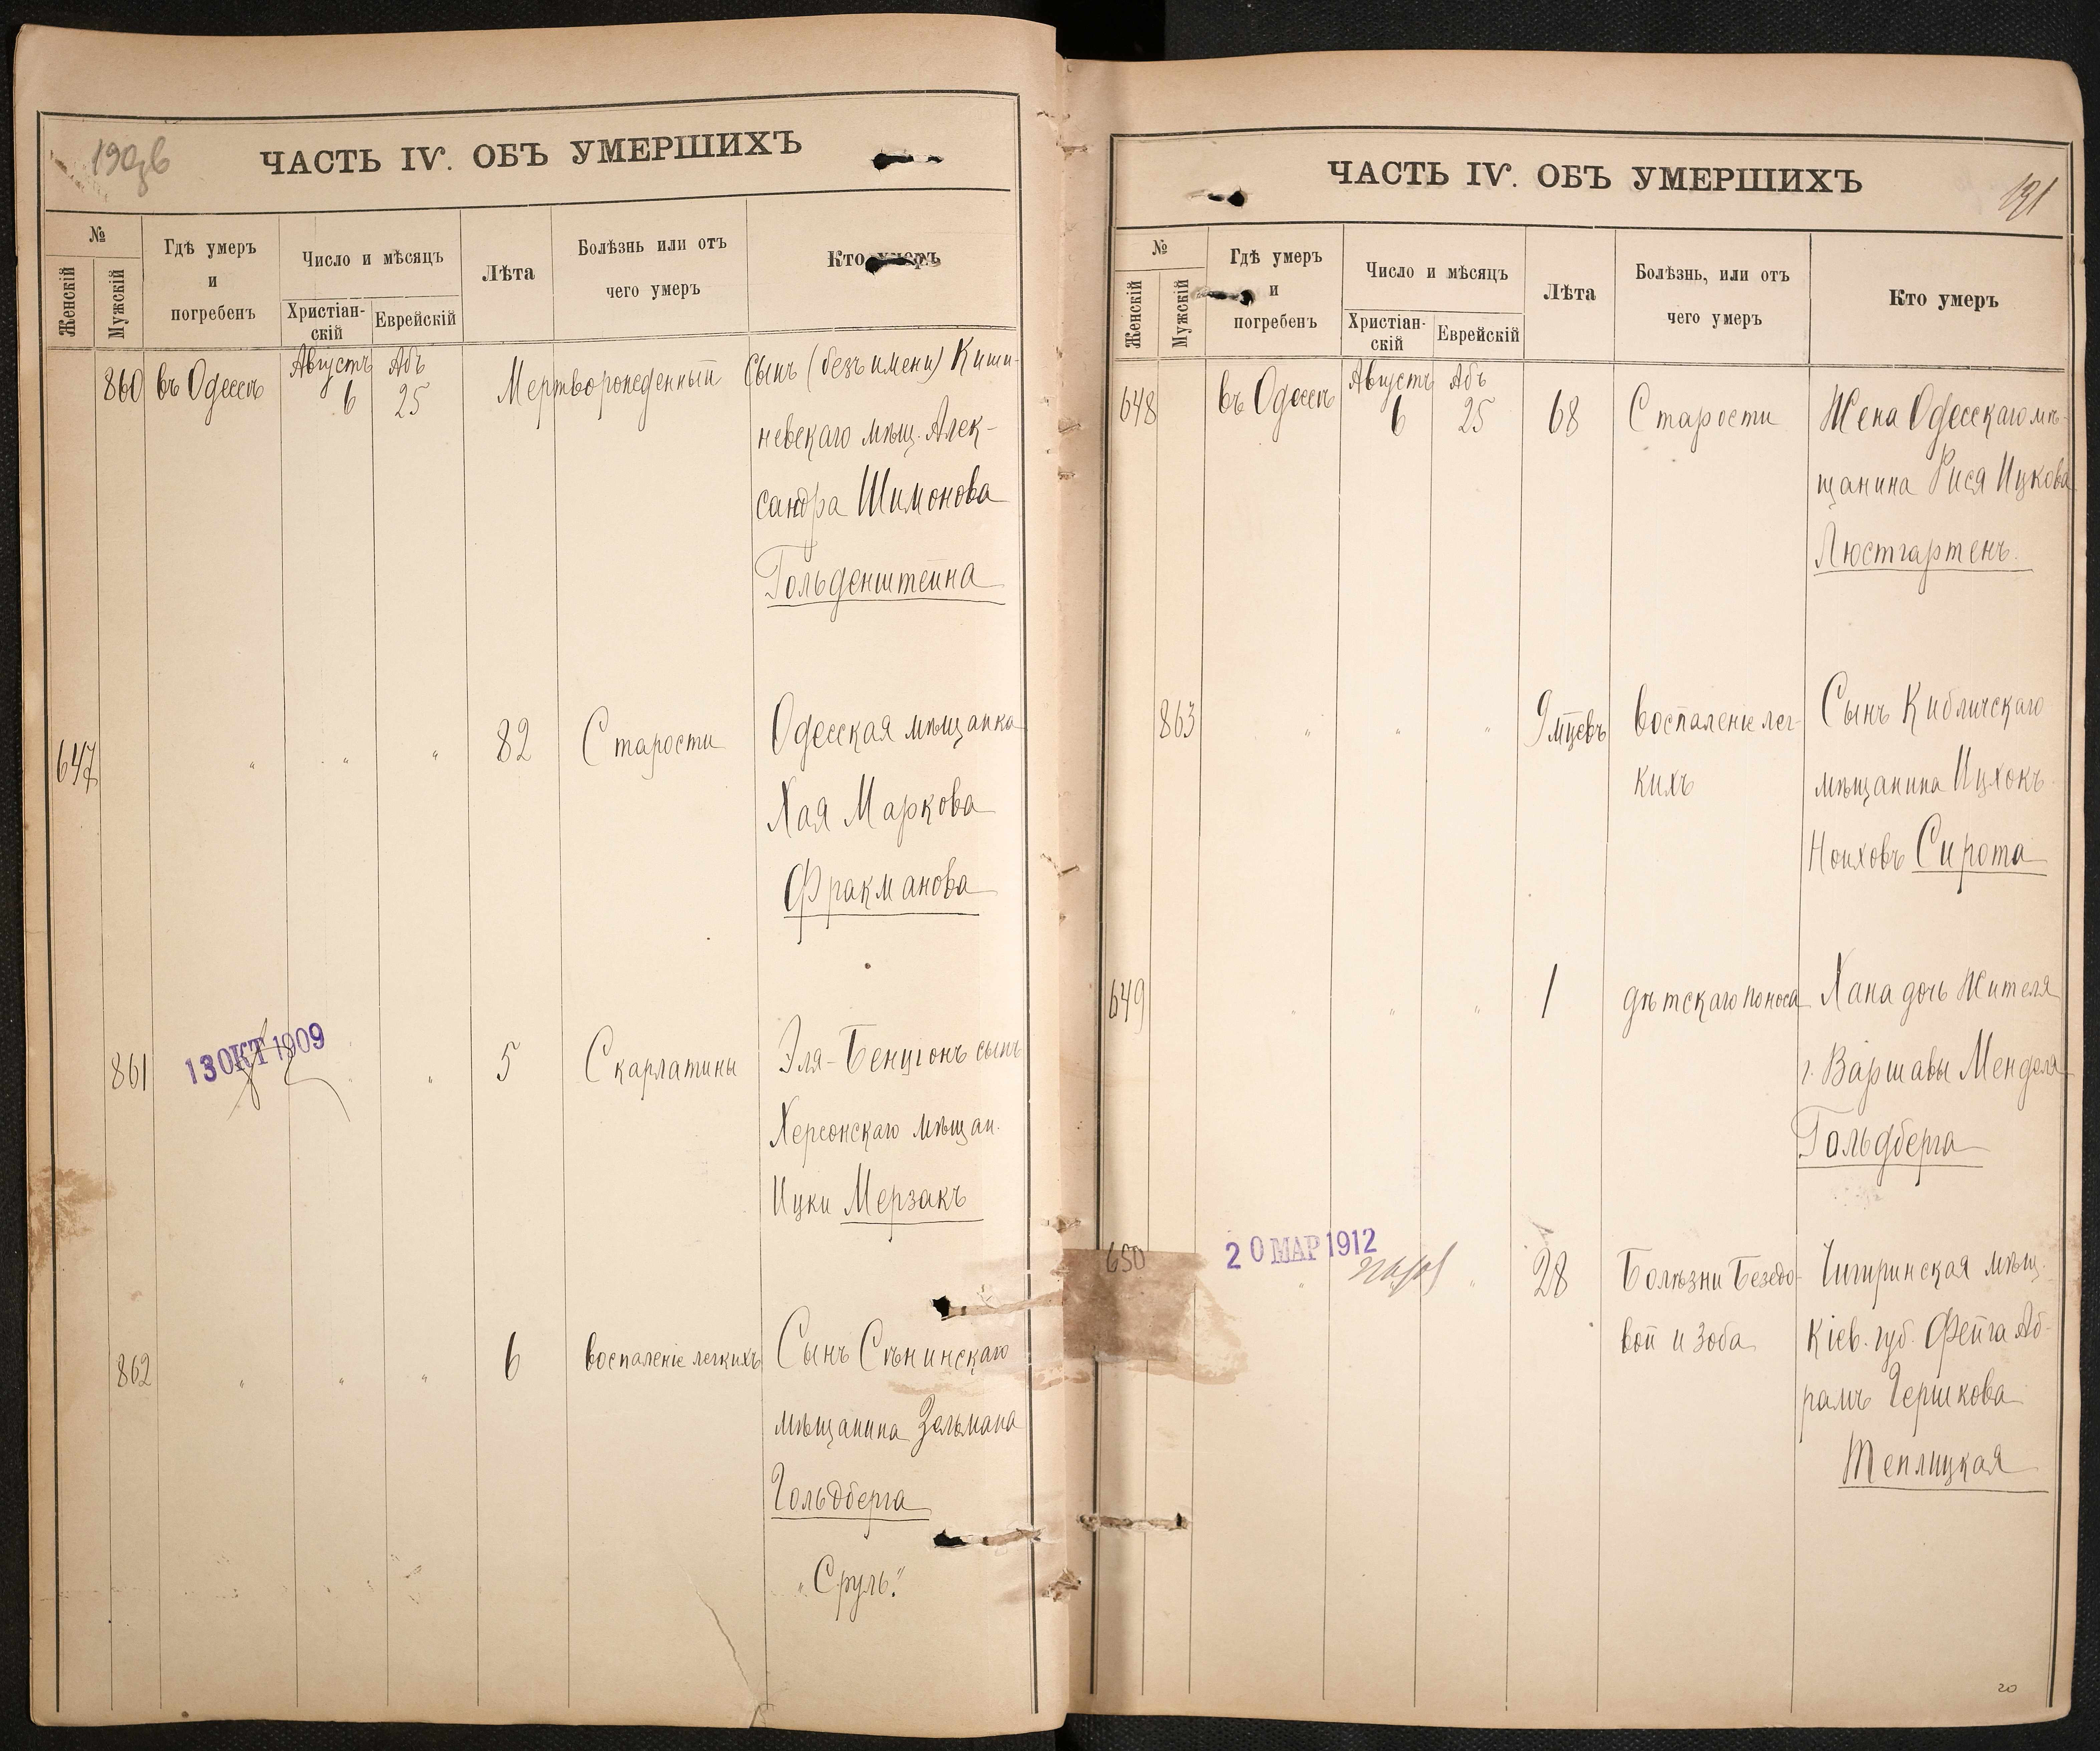 ЧАСТЬ IV. ОБЪ УМЕРШИХЪ
№
Женскій
Мужскій
Гдѣ умеръ
и
погребенъ
Число и мѣсяцъ
Христіан-
скій
Еврейскій
Лѣта
Болѣзнь или отъ
чего умеръ
Кто умеръ
860 въ Одессѣ Августъ 6 Абъ 25 Мертворожденный Сынъ (безъ имени) Киши-
невскаго мѣщ. Алек-
сандра Шимонова
Гольденштейна
647 " " " 82 Старости Одесская мѣщанка
Хая Маркова
Фракманова
861 13 ОКТ 1909 " " 5 Скарлатины Эля-Бенціонъ сынъ
Херсонскаго мѣщан.
Ицки Мерзакъ
862 " " " 6 воспаленіе легкихъ Сынъ
мѣщанина Зельмана
Гольдберга
"Сруль."
ЧАСТЬ IV. ОБЪ УМЕРШИХЪ
191
№
Женскій
Мужскій
Гдѣ умеръ
и
погребенъ
Число и мѣсяцъ
Христіан-
скій
Еврейскій
Лѣта
Болѣзнь, или отъ
чего умеръ
Кто умеръ
648 въ Одессѣ Августъ 6 Абъ 25 68 Старости Жена Одесскаго мѣ-
щанина Рися Ицкова
Люстгартенъ.
863 " " " 9 мцевъ воспаленіе лег- Сынъ Кибличскаго
кихъ мѣщанина Ицхокъ
Ноиховъ Сирота
649 " " " 1 дѣтскаго поноса Хана дочь Жителя
г. Варшавы Менделя
Гольдберга
650 20 МАР 1912 " " 28 Болѣзни Базедо- Чигиринская мѣщ.
вой и Зоба Кіев. губ. Фейга Аб-
рамъ Гершкова
Теплицкая
20